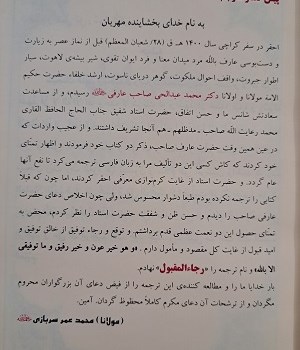 به نام خدای بخشاینده مهربان
احقر در سفر کراچی سال ۱۴۰۰ هـ ق (۲۸/ شعبان المعظم) قبل از نماز عصر به زیارت
و دست‌بوسی عارف بالله مرد میدان معنا و فرد ایوان تقوی، شیر بیشه‌ی لاهوت، سیار
اطوار جبروت، واقف احوال ملکوت، گوهر دریای ناسوت، ارشد خلفاء حضرت حکیم
الامة مولانا و اولانا دکتر محمد عبدالحی صاحب عارفی رسیدم، و از مساعدت
سعادتش شانس ما و حسن اتفاق، حضرت استاد شفیق جناب الحاج الحافظ القاری
محمد رعایت الله صاحب ـ مدظلهم ـ هم آنجا تشریف داشتند. و از عجیب واردات که
در عین همین وقت حضرت عارف صاحب، ذکر دو کتاب خود فرمودند و اظهار تمنّای
خود کردند که کاش کسی این دو تألیف مرا به زبان فارسی ترجمه می‌کرد تا نفع آنها
عام گردد. و حضرت استاد از غایت کرم‌نوازی معرّفی احقر فرمودند، اما چون که قبلا
کتابی را ترجمه نکرده بودم طبعاً دشوار محسوس شد، ولی چون اخلاص دعای حضرت
عارفی صاحب را دیدم و حسن ظن و شفقت حضرت استاد را نظر کردم، محض به
تمنّای حصول این دو نعمت عظمی قدم برداشتم. و توقع رجاء و توفیق از خالق توفیق و
امید قبول از غایت کل مقصود و مأمول دارم . «و هو خیر عون و خیر رفیق و ما توفیقی
الا بالله» و نام ترجمه را «رجاء المقبول» نهادم.
بار خدایا ما را و مطالعه کننده‌ی این ترجمه را از فیوض دعای آن بزرگواران محروم
مگردان و از ترشحات آن دعای مکرم کاملاً محظوظ گردان. آمین.
(مولانا) محمد عمر سربازی